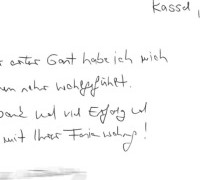 Kassel,
erster Gast habe ich mich
sehr wohlgefühlt.
Dank und viel Erfolg und
mit Ihrer Ferienwohnung!